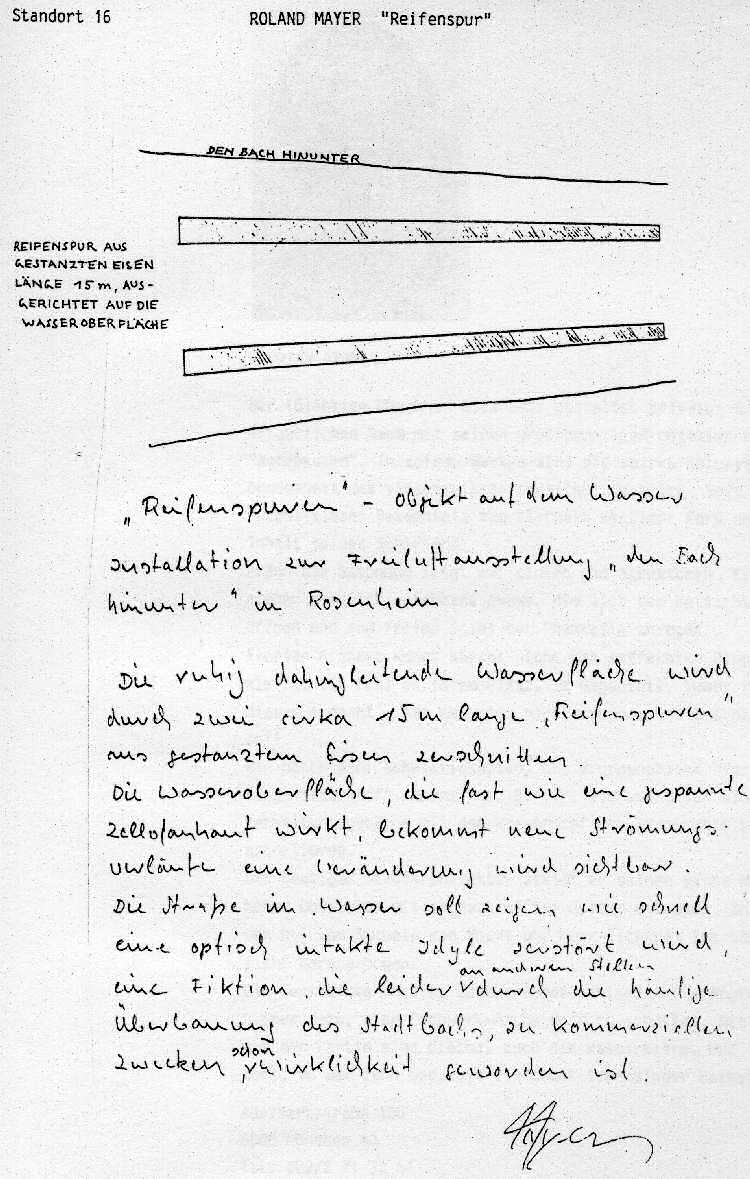 Standort 16
ROLAND MAYER "Reifenspur"
DEN BACH HINUNTER
REIFENSPUR AUS
GESTANZTEN EISEN
LÄNGE 15 m, AUS-
GERICHTET AUF DIE
WASSEROBERFLÄCHE
„Reifenspuren" - Objekt auf dem Wasser
Installation zur Freiluftausstellung „den Bach
hinunter" in Rosenheim
Die ruhig dahingleitende Wasserfläche wird
durch zwei cirka 15m lange „Reifenspuren"
aus gestanztem Eisen zerschnitten
Die Wasseroberfläche, die fast wie eine gespannte
Zellofanhaut wirkt, bekommt neue Strömungs-
verläufe eine Veränderung wird sichtbar.
Die Straße im Wasser soll zeigen, wie schnell
eine optisch intakte Idyle zerstört wird,
an anderen Stellen
eine Fiktion, die leider durch die häufige
Überbauung des Stadtbachs, zu kommerziellen
schon
Zwecken, Wirklichkeit geworden ist